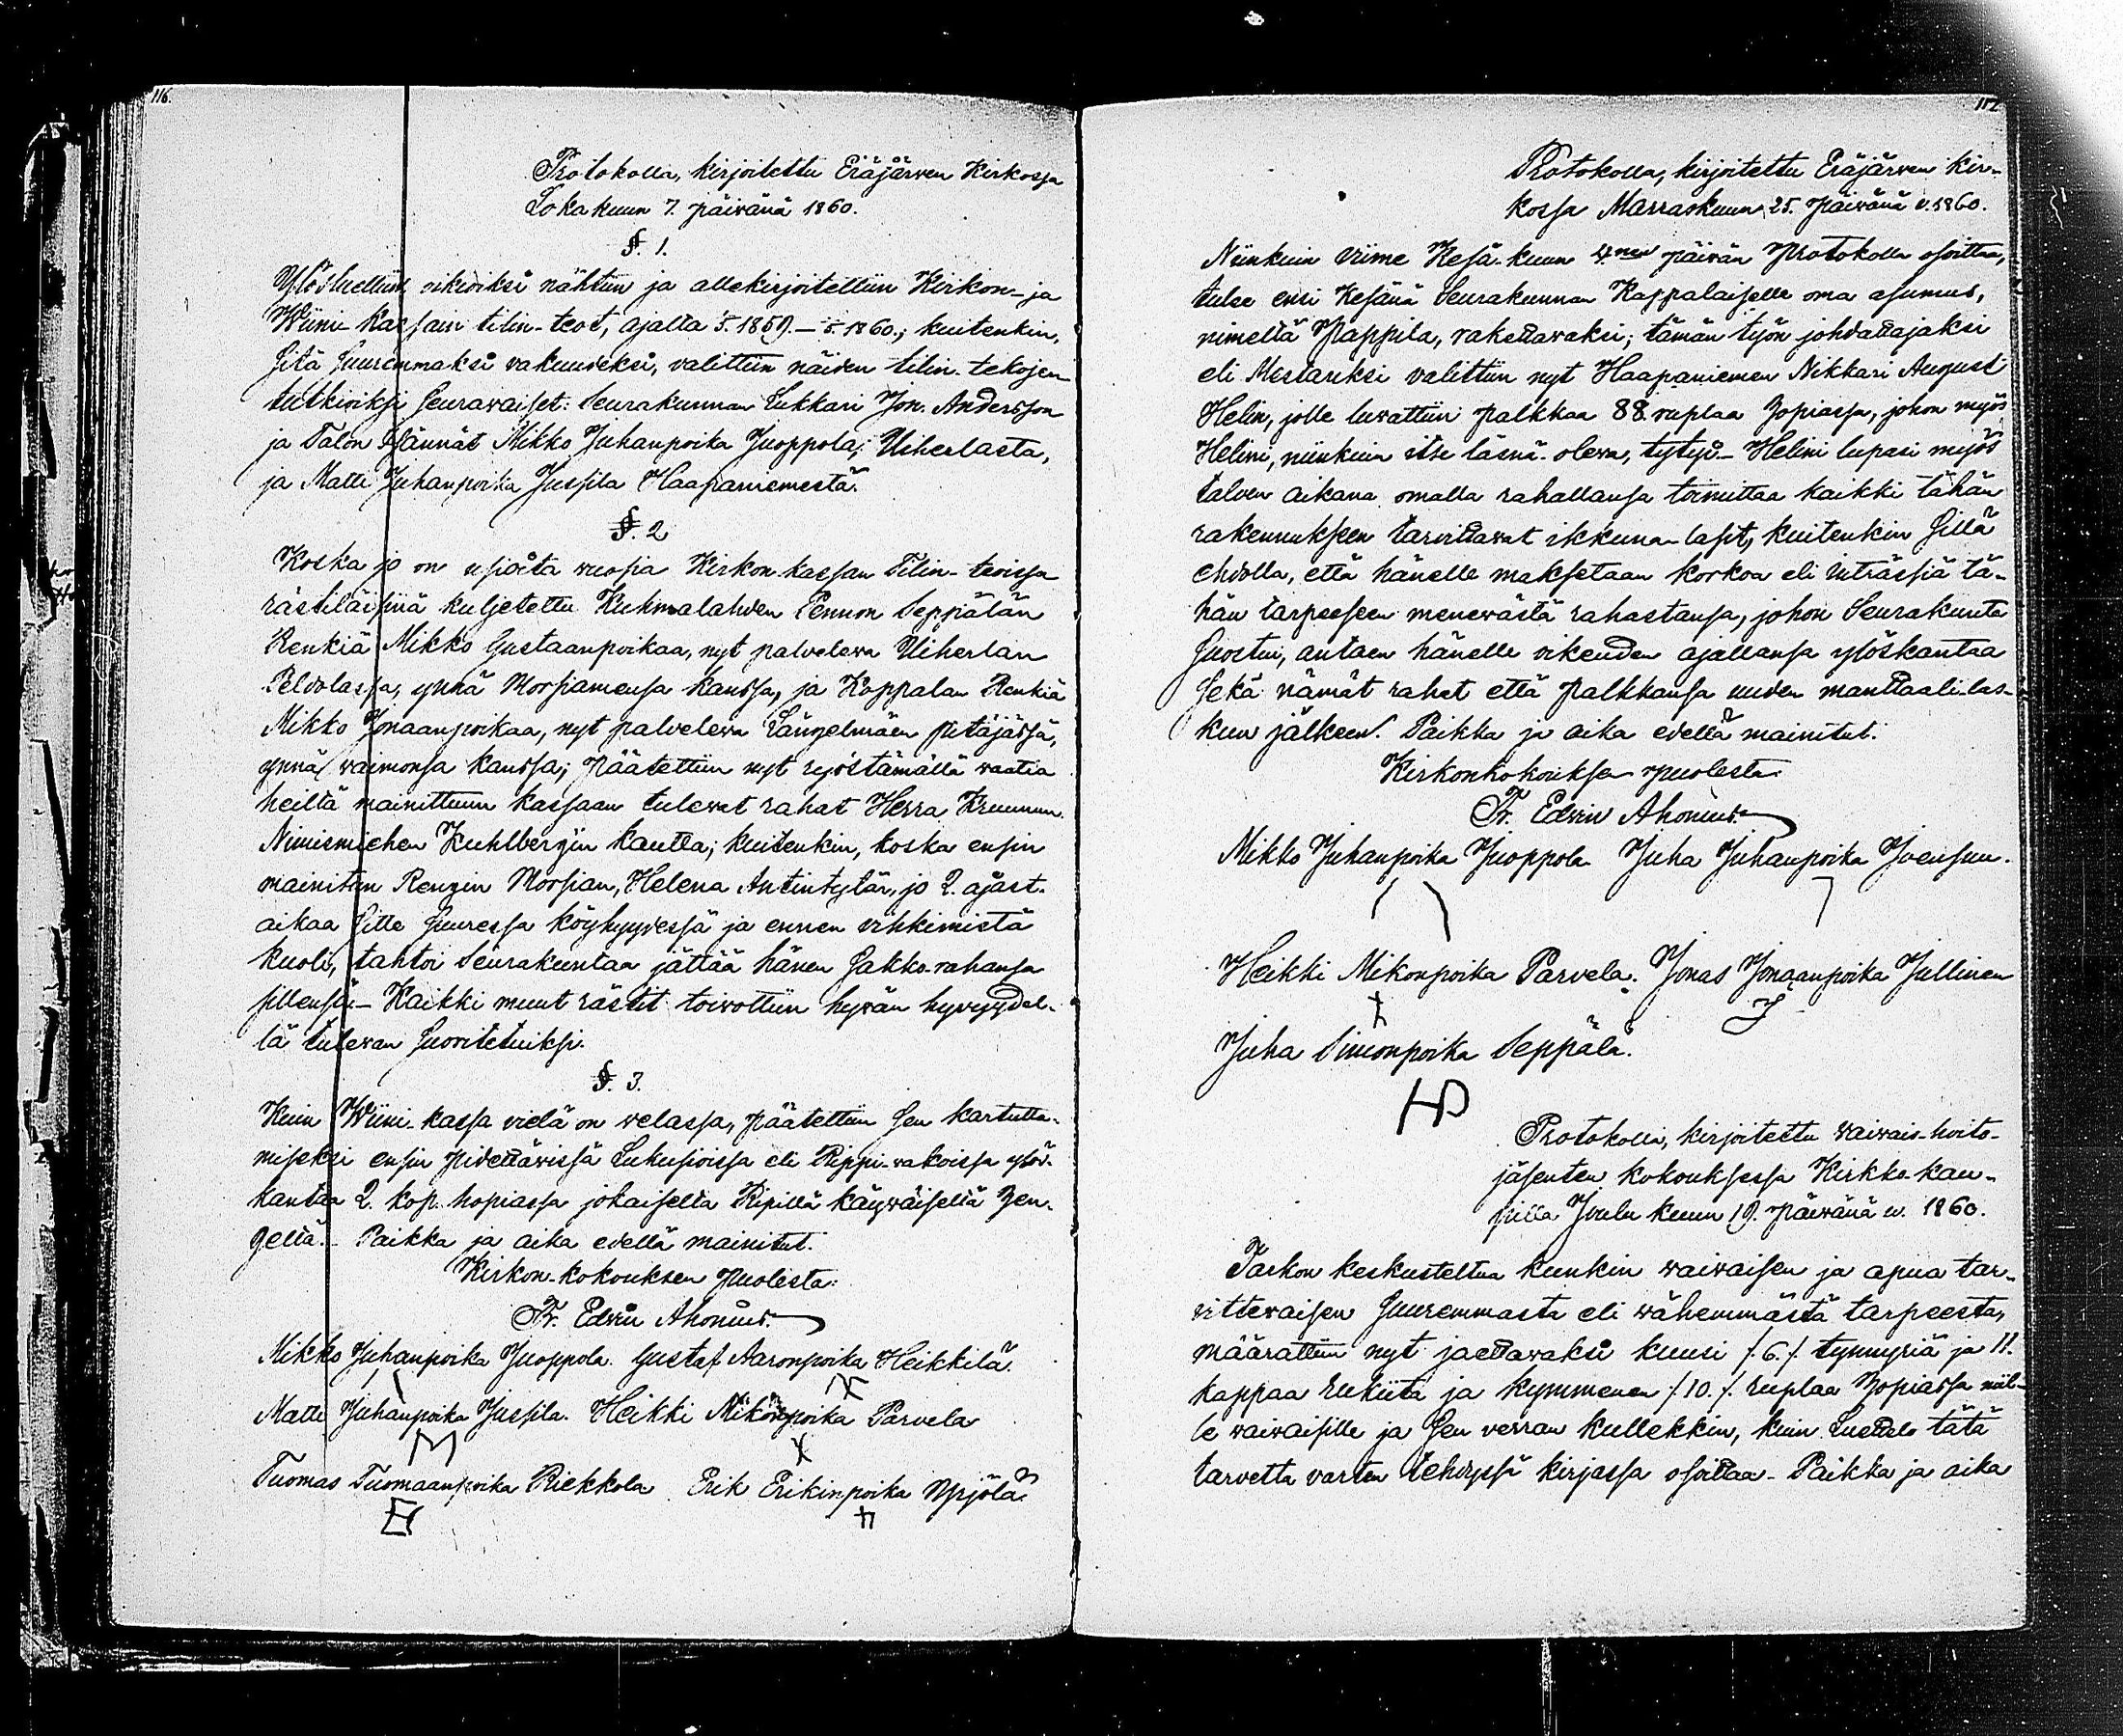 116.
Protokolla, kirjoitettu Eräjärwen Kirkossa
Lokakuun 7. päivänä 1860.
§. 1.
Ylösluettiin oikioiksi nähtiin ja allekirjoitettiin Kirkon- ja
Wiini-kassain tilin-teot, ajalta 1859.–1860.; kuitenkin,
sitä suuremmaksi vakuudeksi, valittiin näiden tilin-tekojen
tutkioiksi seuravaiset: Seurakunnan Lukkari Joh. Andersson
ja Talon Isännät Mikko Juhanpoika Juoppola, Uiherlasta,
ja Matti Juhanpoika Jussila Haapaniemestä.
§. 2
Koska jo on usioita vuosia Kirkon kassan Tilin-teoissa
rästiläisinä kuljetettu Kuhmalahden Pennon Seppälän
Renkiä Mikko Gustaanpoikaa, nyt palveleva Uiherlan
Peldolassa, ynnä Morsiamensa kanssa, ja Koppalan Renkiä
Mikko Jonaanpoikaa, nyt palveleva Längelmäen pitäjässä,
ynnä waimonsa kanssa; päätettiin nyt ryöstämällä waatia
heiltä mainittuun kassaan tulevat rahat Herra Kruunun
Nimismiehen Kuhlbergin kautta; kuitenkin, koska ensin
mainitun Rengin Morsian, Helena Antintytär, jo 2. ajast-
aikaa sitte suuressa köyhyydessä ja ennen vihkimistä
kuoli, tahtoi Seurakuntaa jättää hänen Sakko-rahansa
sillensä – Kaikki muut rästit toivottiin hyvän hyvyydel-
lä tulevan suoritetuiksi.
§. 3.
Kuin Wiini-kassa vielä on velassa, päätettiin sen kartutta-
miseksi ensin pidettävissä Lukusioissa eli Rippi-vakoissa ylös-
kantaa 2. kop. hopiassa jokaiselta Ripillä käywäiseltä Hen-
geltä. – Paikka ja aika edellä mainitut.
Kirkon-kokouksen puolesta:
Fr. Edvin Ahonius.
Mikko Juhanpoika Juoppola. Gustaf Aaronpoika Heikkilä.
Matti Juhanpoika Jussila. Heikki Mikonpoika Parvela
Tuomas Tuomaanpoika Riekkola Erik Erikinpoika Yrjölä
117
Protokolla, kirjoitettu Eräjärven Kir-
kossa Marraskuun 25. päivänä v. 1860.
Niinkuin viime Kesä-kuun päivän Protokolla osoittaa,
tulee ensi Kesänä Seurakunnan Kappalaiselle oma asumus,
nimeltä Pappila, rakettavaksi; tämän työn johdattajaksi
eli Mestariksi valittiin nyt Haapaniemen Nikkari August
Helin, jolle luvattiin palkkaa 88. ruplaa Hopiassa, johon myös
Helini, niinkuin itse läsnä-oleva, tytyi – Helini lupasi myös
talven aikana omalla rahallansa toimittaa kaikki tähän
rakennukseen tarvittavat ikkuna-lasit, kuitenkin sillä
ehdolla, että hänelle maksetaan korkoa eli inträssiä tä-
hän tarpeeseen menevästä rahastansa, johon Seurakunta
suostui, antaen hänelle oikeuden ajallansa ylöskantaa
sekä nämät rahat että palkkansa uuden manttaali-las-
kun jälkeen. Paikka ja aika edellä mainitut.
Kirkonkokouksen puolesta:
Fr. Edvin Ahonius
Mikko Juhanpoika Juoppola Juha Juhanpoika Joensuu.
Heikki Mikonpoika Parvela. Jonas Jonaanpoika Jullinen
Juha Simonpoika Seppälä.
Protokolli, kirjoitettu Waivais-hoito-
jäsenten kokouksessa Kirkko-kan-
silla Joulu kuun 19. päivänä w. 1860.
Tarkon keskusteltua kunkin waivaisen ja apua tar-
vittevaisen suuremmasta eli wähemmästä tarpeesta,
määrattiin nyt jaettavaksi kuusi /. 6. /. tynnyriä ja 11.
kappaa rukiita ja kymmenen /. 10. /. ruplaa Hopiassa näil-
le waivaisille ja sen verran kullekkin, kuin Luettelo tätä
tarvetta varten tehdyssä kirjassa osoittaa – Paikka ja aika